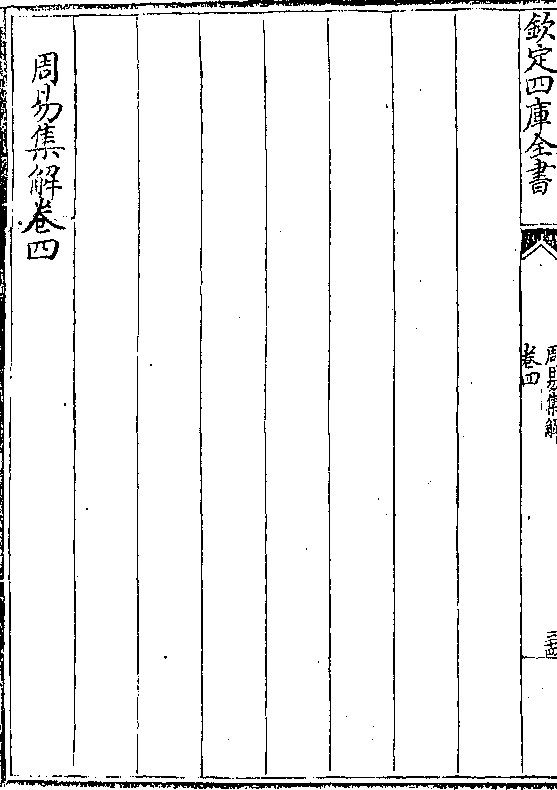 欽定四庫全書
周易集解
卷四
三十四
周易集解卷四